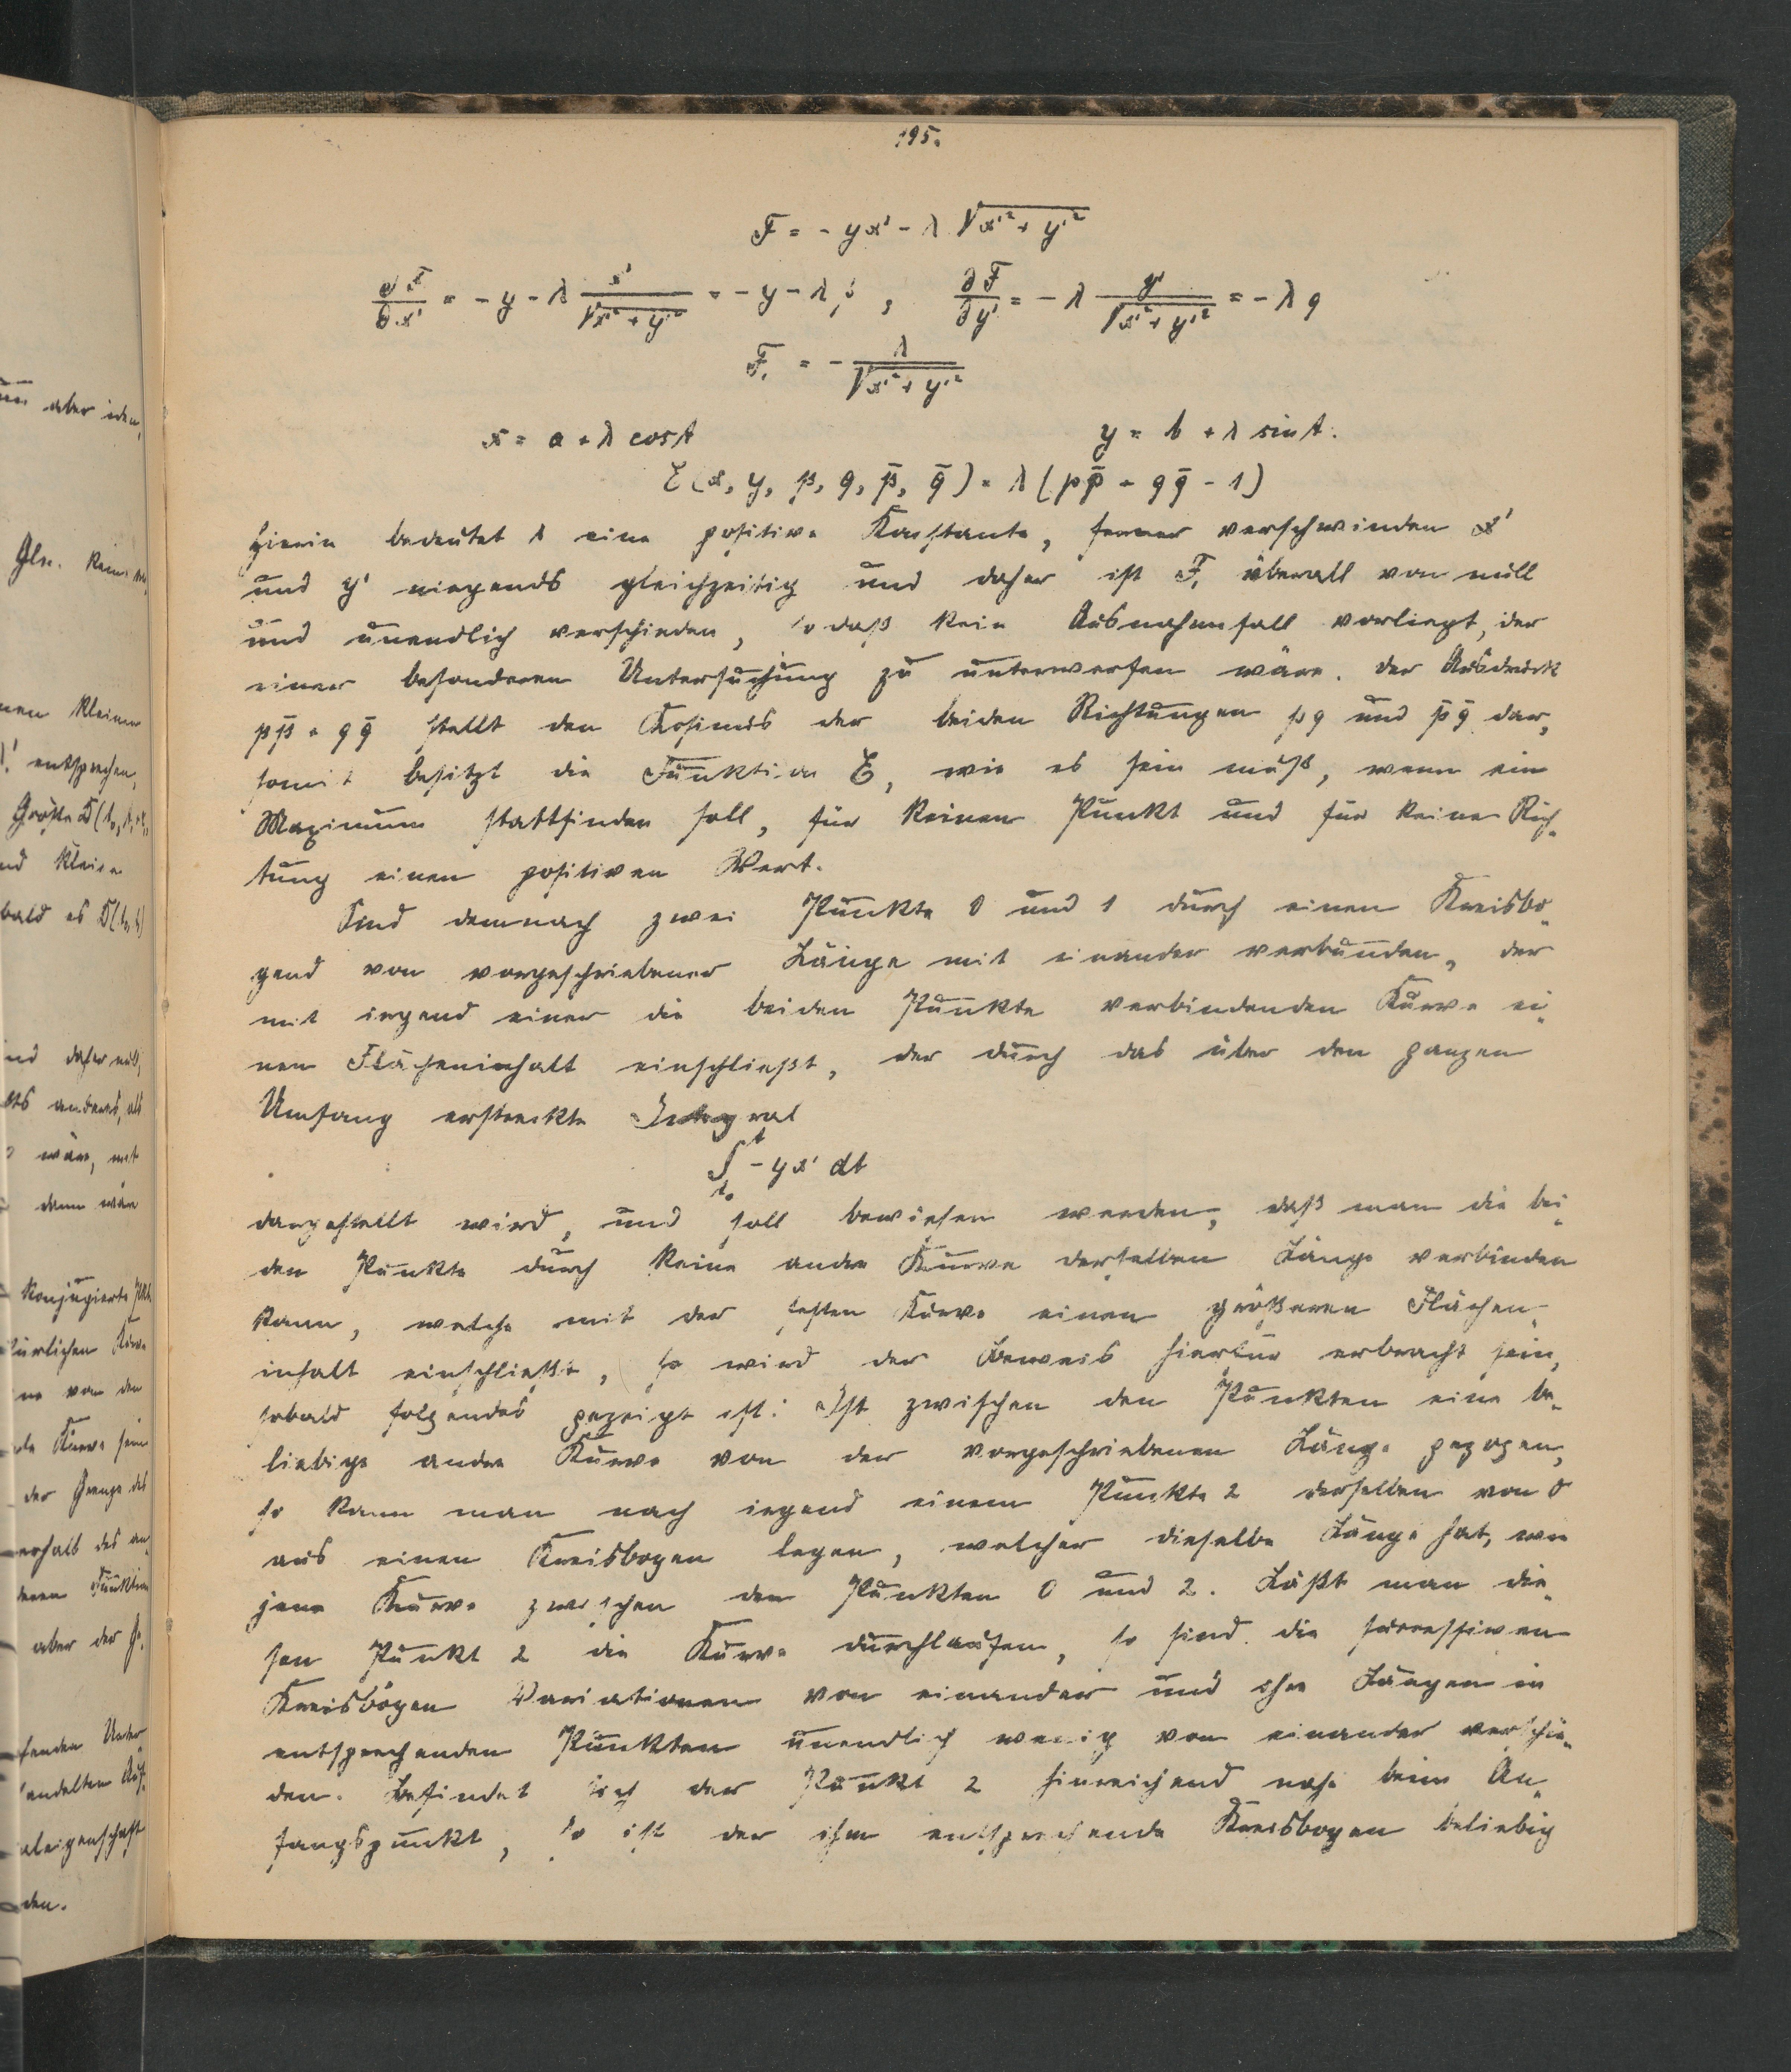 195.
F = - yx' - λ √x'² + y'²
∂F/∂x' = - y - λ x'/√x'² + y'² = - y - λ p , ∂F/∂y' = - λ y'/√x'² + y'² = - λ q
F₁ = - λ/√x'² + y'²
x = a + λ cos t y = b + λ sin t.
E (x, y, p, q, p̄, q̄) = λ (pp̄ + qq̄ - 1)
Hierin bedeutet λ eine positive Konstante, ferner verschwinden x'
und y' nirgends gleichzeitig und daher ist F₁ überall von null
und unendlich verschieden, so daß kein Ausnahmfall vorliegt, der
einer besonderen Untersuchung zu unterwerfen wäre. Der Ausdruck
pp̄ + qq̄ stellt den Kosinus der beiden Richtungen pq und p̄q̄ dar,
somit besitzt die Funktion E, wie es sein muß, wenn ein
Maximum stattfinden soll, für keinen Punkt und für keine Rich-
tung einen positiven Wert.
Sind demnach zwei Punkte 0 und 1 durch einen Kreisbo-
gend von vorgeschriebener Länge mit einander verbunden, der
mit irgend einer die beiden Punkte verbindenden Kurve ei-
nen Flächeninhalt einschließt, der durch das über den ganzen
Umfang erstreckte Integral
∫ₜ₀ᵗ - yx' dt
dargestellt wird, und soll bewiesen werden, daß man die bei-
den Punkte durch keine andre Kurve derselben Länge verbinden
kann, welche mit der festen Kurve einen größeren Flächen-
inhalt einschließt, so wird der Beweis hierfür erbracht sein,
sobald folgendes gezeigt ist: Ist zwischen den Punkten eine be-
liebige andre Kurve von der vorgeschriebenen Länge gezogen,
so kann man nach irgend einem Punkte 2 derselben von 0
aus einen Kreisbogen legen, welcher dieselbe Länge hat, wie
jene Kurve zwischen den Punkten 0 und 2. Läßt man die-
sen Punkt 2 die Kurve durchlaufen, so sind die successiven
Kreisbögen Variationen von einander und ihre Längen in
entsprechenden Punkten unendlich wenig von einander verschie-
den. Befindet sich der Punkt 2 hinreichend nahe beim An-
fangspunkt, so ist der ihm entsprechende Kreisbogen beliebig